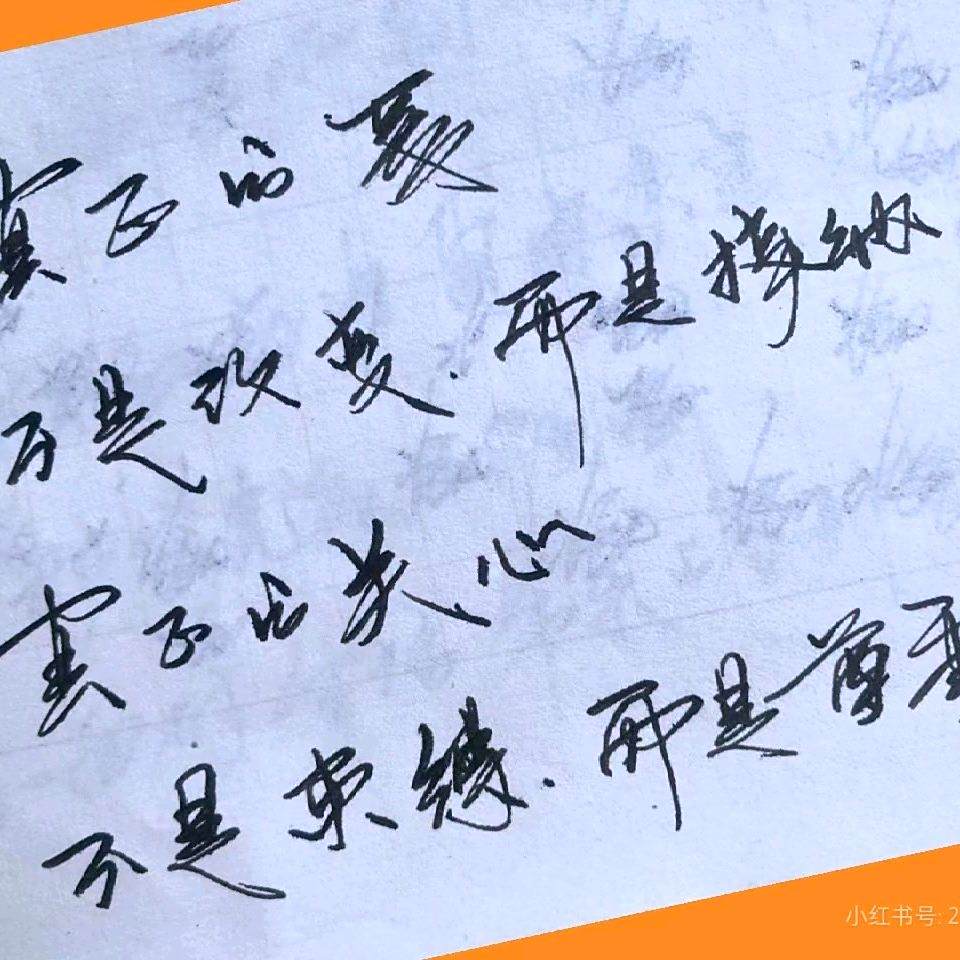 真正的爱
不是改变.而是接纳
真正的关心
不是束缚.而是尊重
小红书号: 2